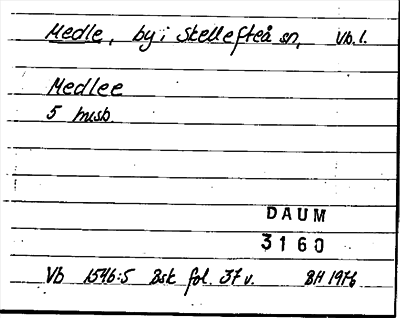 Medle, by i Skellefteå sn, Vb. l.
Medlee
5 husb.
DAUM
3160
Vb 1546:5 Bsk fol. 37 v. BH 1976